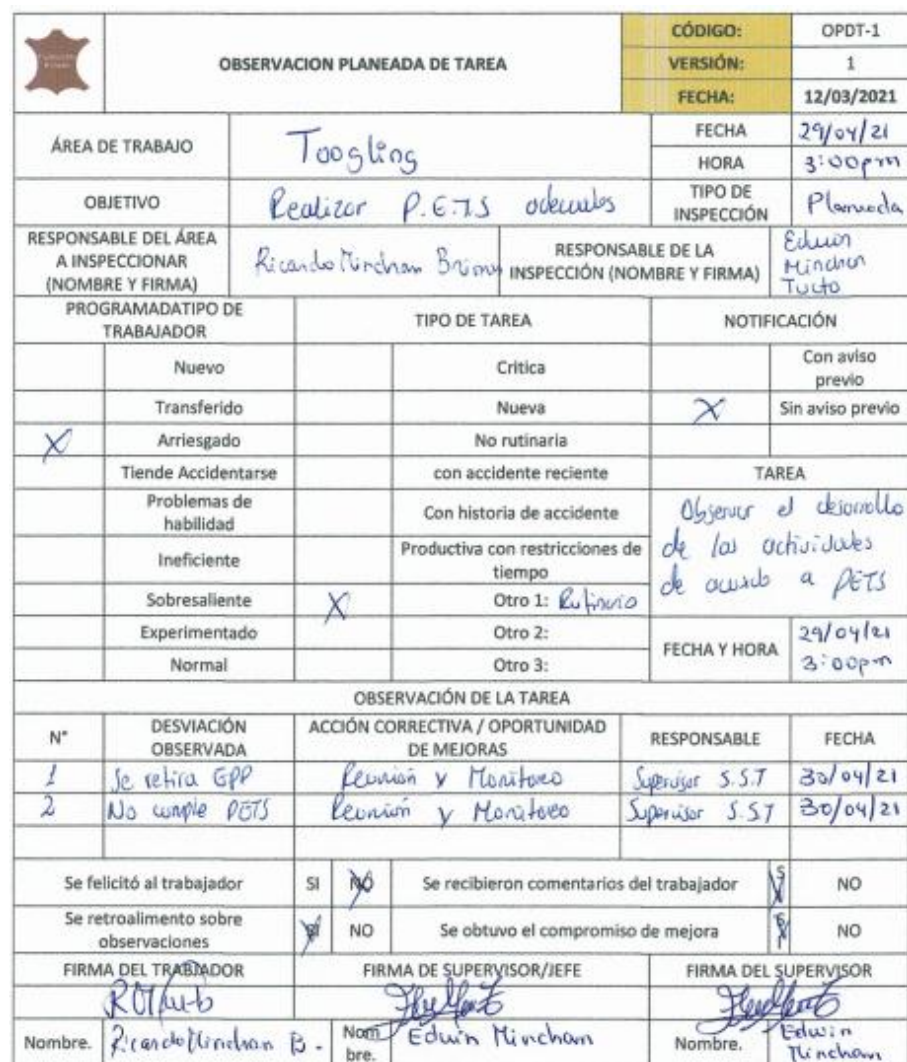 CÓDIGO: OPDT-1
OBSERVACION PLANEADA DE TAREA
VERSIÓN: 1
FECHA: 12/03/2021
ÁREA DE TRABAJO Toogling
FECHA 29/04/21
HORA 3:00pm
OBJETIVO Realizar P.E.T.S adecuados
TIPO DE INSPECCIÓN Planeada
RESPONSABLE DEL ÁREA
A INSPECCIONAR
(NOMBRE Y FIRMA)
Ricardo Minchan
RESPONSABLE DE LA
INSPECCIÓN (NOMBRE Y FIRMA)
Edwin
Minchan
PROGRAMADATIPO DE
TRABAJADOR
TIPO DE TAREA
NOTIFICACIÓN
Nuevo Critica Con aviso previo
Transferido Nueva X Sin aviso previo
X Arriesgado No rutinaria
Tiende Accidentarse con accidente reciente TAREA
Problemas de habilidad Con historia de accidente
Ineficiente Productiva con restricciones de tiempo
Sobresaliente X Otro 1: Rutinario
Observar el desarrollo
de las actividades
de acuerdo a PETS
Experimentado Otro 2:
Normal Otro 3:
FECHA Y HORA 29/04/21
3:00pm
OBSERVACIÓN DE LA TAREA
N° DESVIACIÓN OBSERVADA ACCIÓN CORRECTIVA / OPORTUNIDAD DE MEJORAS RESPONSABLE FECHA
1 Se retira EPP Reunión y Monitoreo Supervisor S.S.T 30/04/21
2 No cumple PETS Reunión y Monitoreo Supervisor S.S.T 30/04/21
Se felicitó al trabajador SI NO Se recibieron comentarios del trabajador SI NO
Se retroalimento sobre observaciones SI NO Se obtuvo el compromiso de mejora SI NO
FIRMA DEL TRABJADOR FIRMA DE SUPERVISOR/JEFE FIRMA DEL SUPERVISOR
Nombre. Ricardo Minchan B. Nombre. Edwin Minchan Nombre. Edwin Minchan